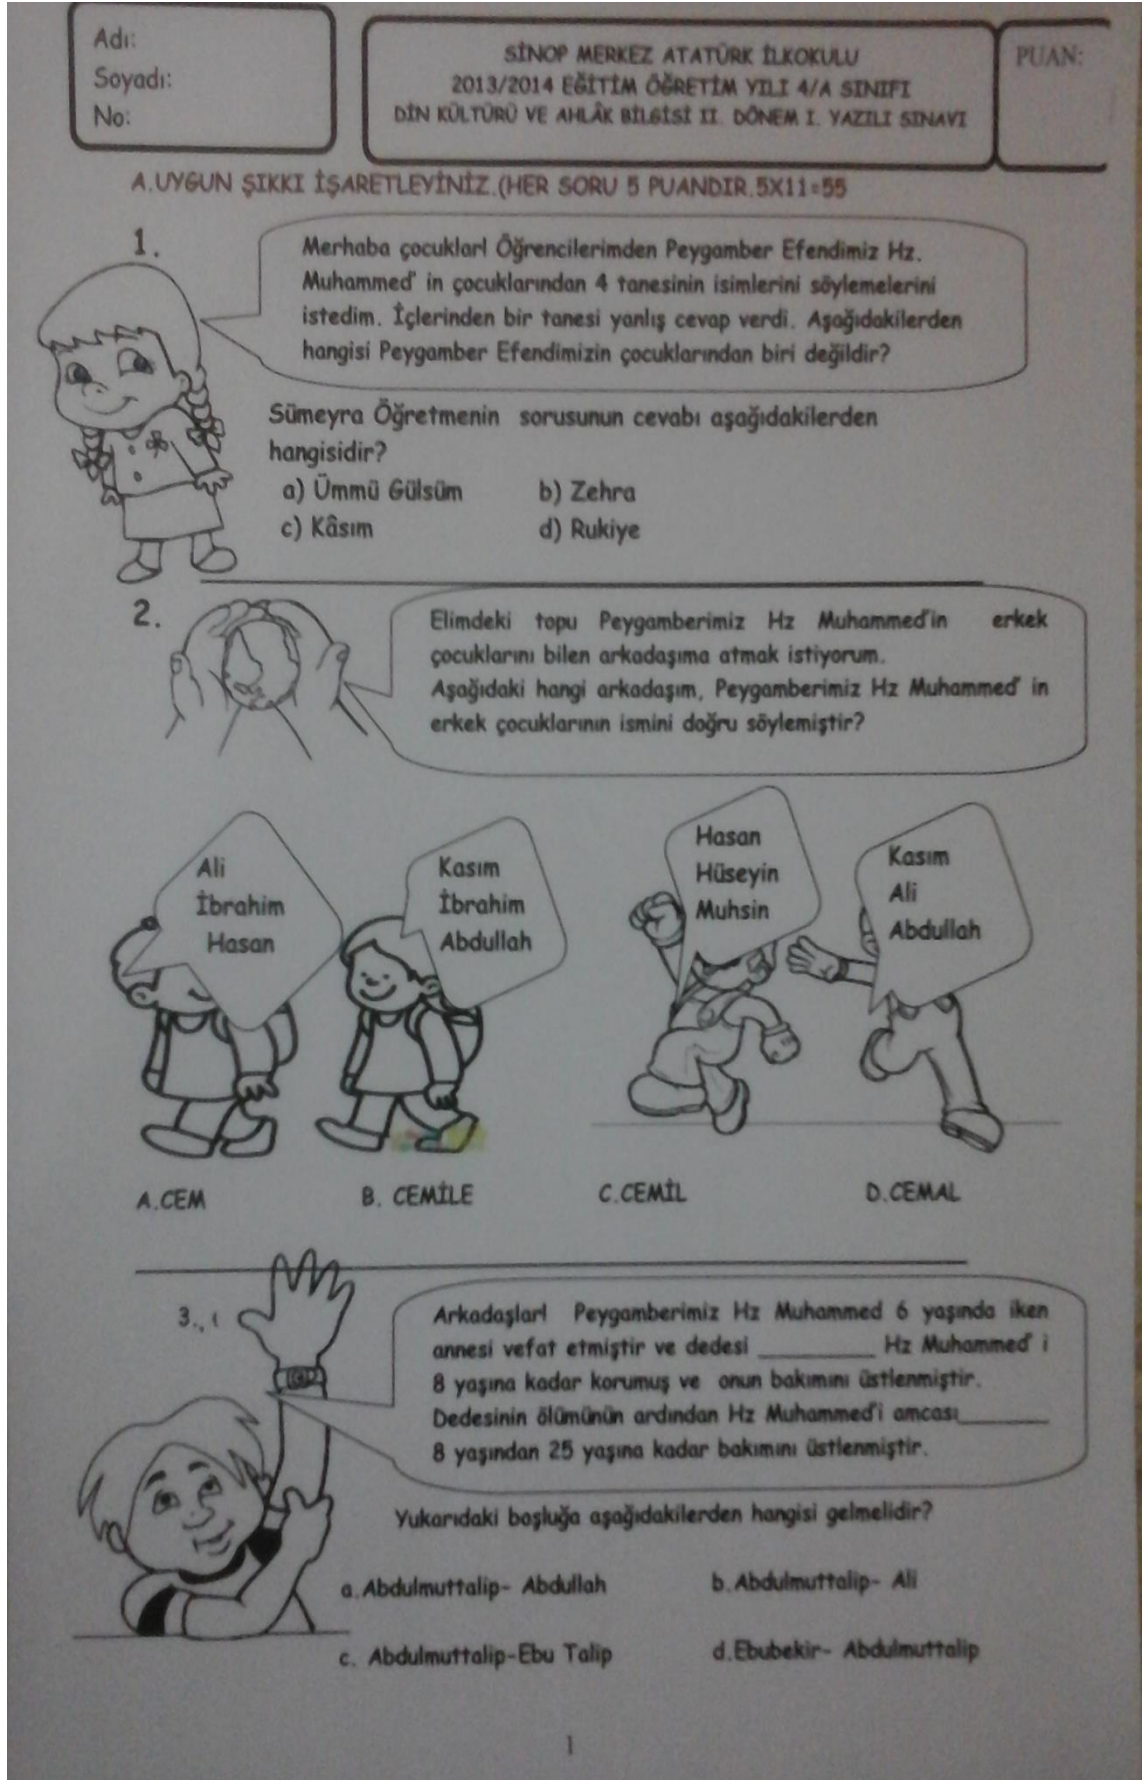 Adı:
Soyadı:
No:
SİNOP MERKEZ ATATÜRK İLKOKULU
2013/2014 EĞİTİM ÖĞRETİM YILI 4/A SINIFI
DİN KÜLTÜRÜ VE AHLÂK BİLGİSİ II. DÖNEM I. YAZILI SINAVI
PUAN:
A.UYGUN ŞIKKI İŞARETLEYİNİZ.(HER SORU 5 PUANDIR.5X11=55
1.
Merhaba çocuklar! Öğrencilerimden Peygamber Efendimiz Hz.
Muhammed' in çocuklarından 4 tanesinin isimlerini söylemelerini
istedim. İçlerinden bir tanesi yanlış cevap verdi. Aşağıdakilerden
hangisi Peygamber Efendimizin çocuklarından biri değildir?
Sümeyra Öğretmenin sorusunun cevabı aşağıdakilerden
hangisidir?
a) Ümmü Gülsüm b) Zehra
c) Kâsım d) Rukiye
2.
Elimdeki topu Peygamberimiz Hz Muhammed'in erkek
çocuklarını bilen arkadaşıma atmak istiyorum.
Aşağıdaki hangi arkadaşım, Peygamberimiz Hz Muhammed' in
erkek çocuklarının ismini doğru söylemiştir?
Ali
İbrahim
Hasan
Kasım
İbrahim
Abdullah
Hasan
Hüseyin
Muhsin
Kasım
Ali
Abdullah
A.CEM B. CEMİLE C.CEMİL D.CEMAL
3.,
Arkadaşlar! Peygamberimiz Hz Muhammed 6 yaşında iken
annesi vefat etmiştir ve dedesi __________ Hz Muhammed' i
8 yaşına kadar korumuş ve onun bakımını üstlenmiştir.
Dedesinin ölümünün ardından Hz Muhammed'i amcası________
8 yaşından 25 yaşına kadar bakımını üstlenmiştir.
Yukarıdaki boşluğa aşağıdakilerden hangisi gelmelidir?
a.Abdulmuttalip- Abdullah b.Abdulmuttalip- Ali
c. Abdulmuttalip-Ebu Talip d.Ebubekir- Abdulmuttalip
1